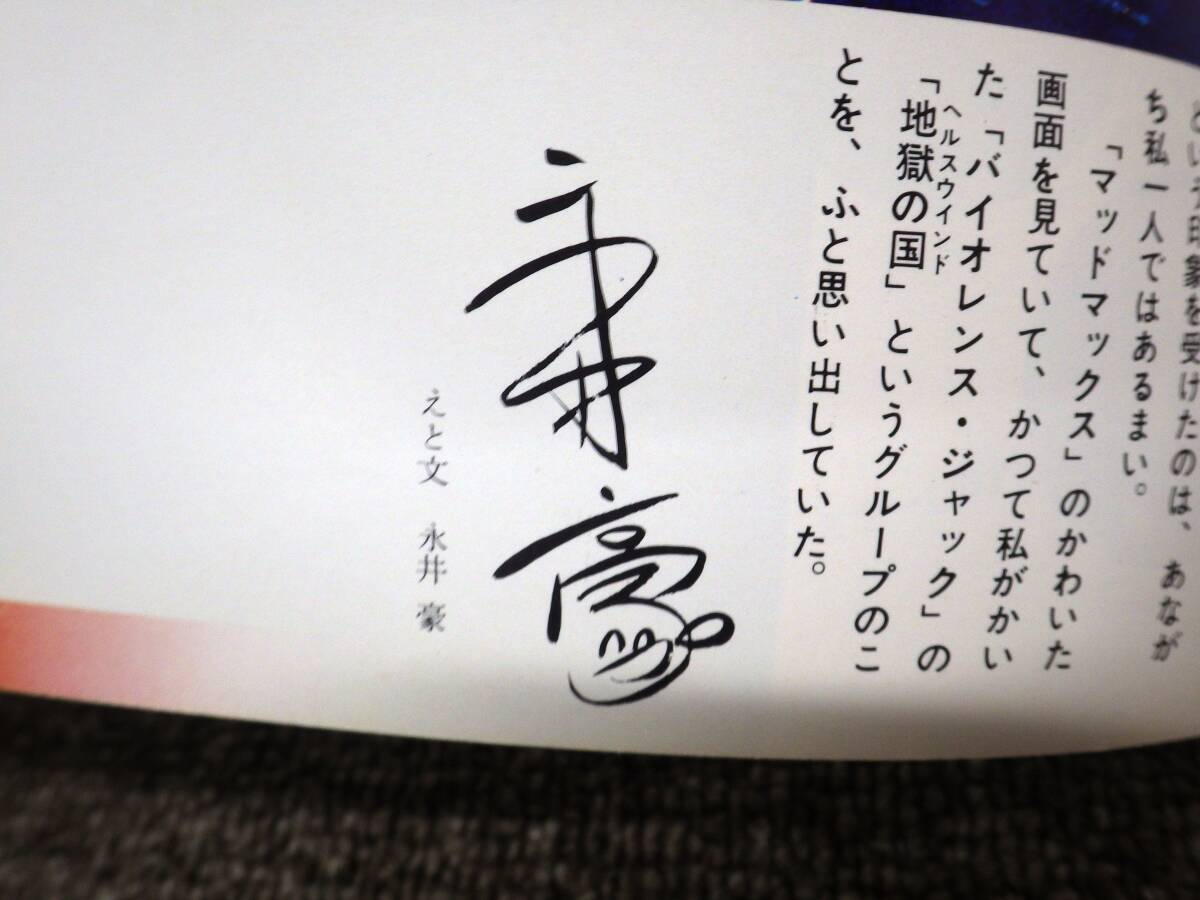 という印象を受けたのは、あなが
ち私一人ではあるまい。
「マッドマックス」のかわいた
画面を見ていて、かつて私がかい
た「バイオレンス・ジャック」の
ヘルスウインド
「地獄の国」というグループのこ
とを、ふと思い出していた。
永井豪
えと文 永井 豪